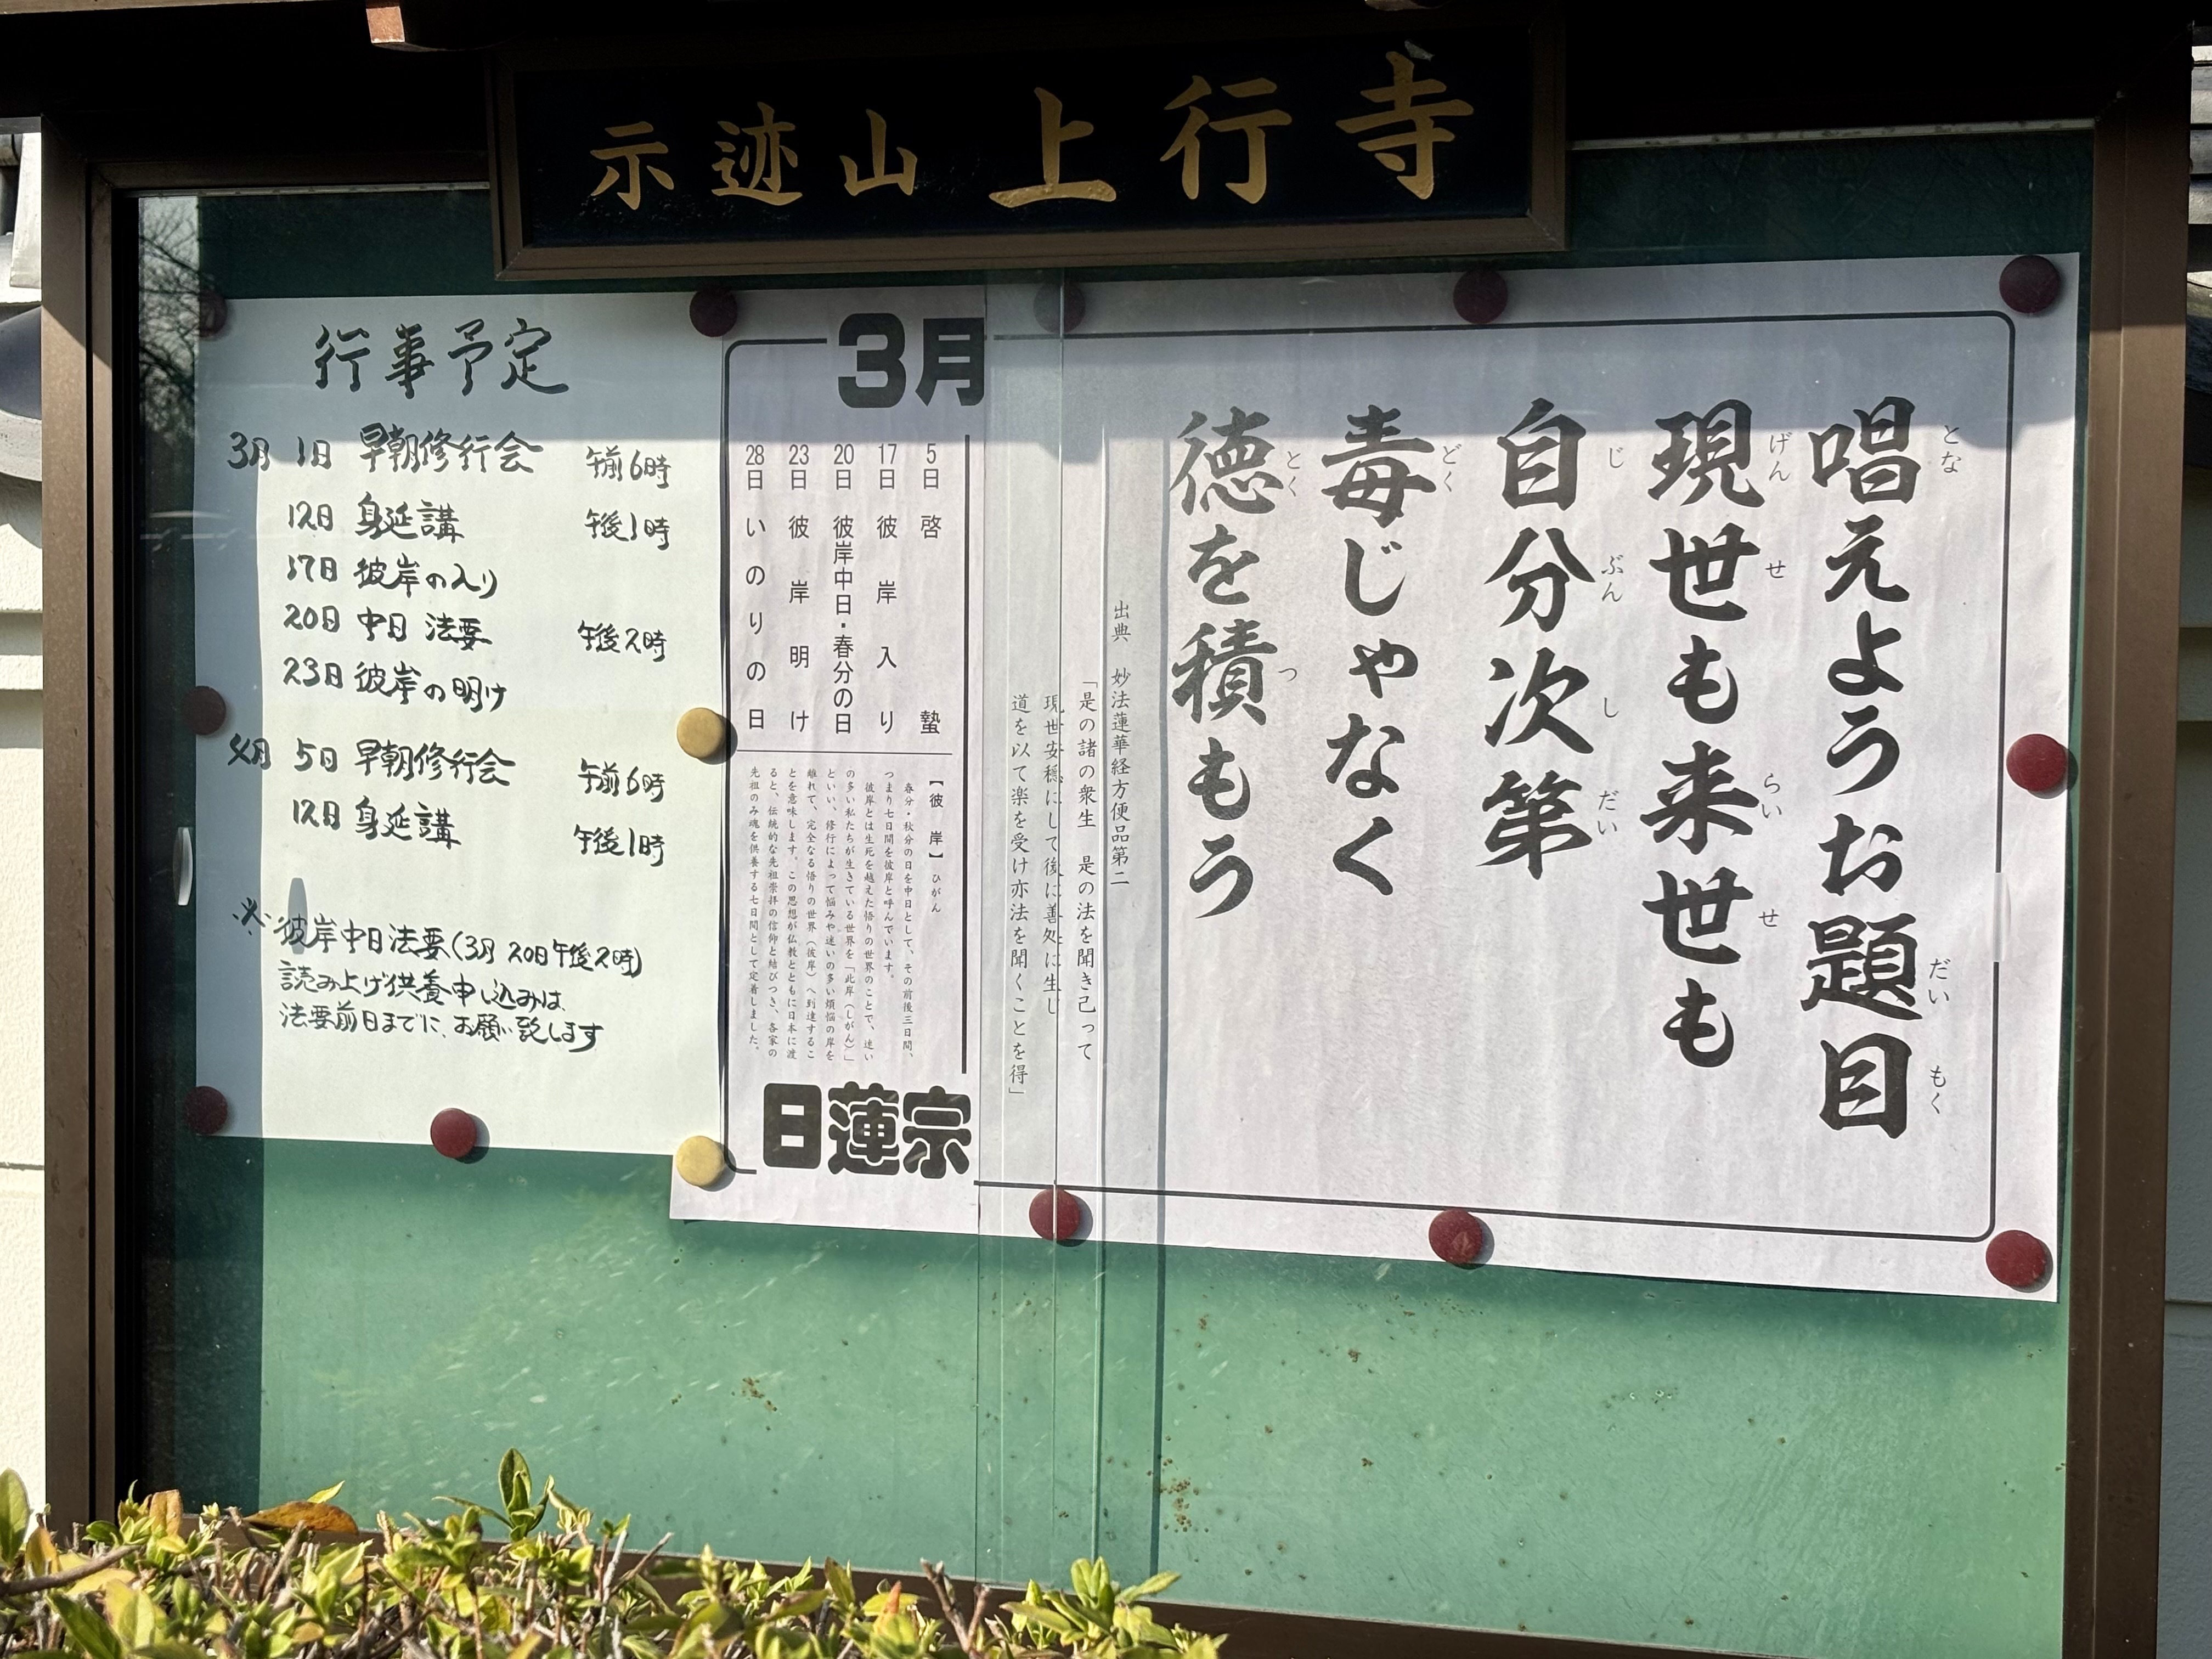 示迹山 上行寺
行事予定
3月 1日 早朝修行会 午前6時
12日 身延講 午後1時
17日 彼岸の入り
20日 中日 法要 午後2時
23日 彼岸の明け
4月 5日 早朝修行会 午前6時
12日 身延講 午後1時
※ 彼岸中日法要(3月20日午後2時)
読み上げ供養申し込みは、
法要前日までに、お願い致します
唱えようお題目
とな
だいもく
現世も来世も
げんせ
らいせ
自分次第
じぶんしだい
毒じゃなく
どく
徳を積もう
とく
つ
出典 妙法蓮華経方便品第二
「是の諸の衆生 是の法を聞き已って
現世安穏にして後に善処に生じ
道を以て楽を受け亦法を聞くことを得」
3月
5日 啓蟄
17日 彼岸入り
20日 彼岸中日・春分の日
23日 彼岸明け
28日 いのりの日
【彼岸】ひがん
春分・秋分の日を中日として、その前後三日間、
つまり七日間を彼岸と呼んでいます。
彼岸とは生死を越えた悟りの世界のことで、迷い
の多い私たちが生きている世界を「此岸(しがん)」
といい、修行によって悩みや迷いの多い煩悩の岸を
離れて、完全なる悟りの世界(彼岸)へ到達するこ
とを意味します。この思想が仏教とともに日本に渡
ると、伝統的な先祖崇拝の信仰と結びつき、各家の
先祖のみ魂を供養する七日間として定着しました。
日蓮宗